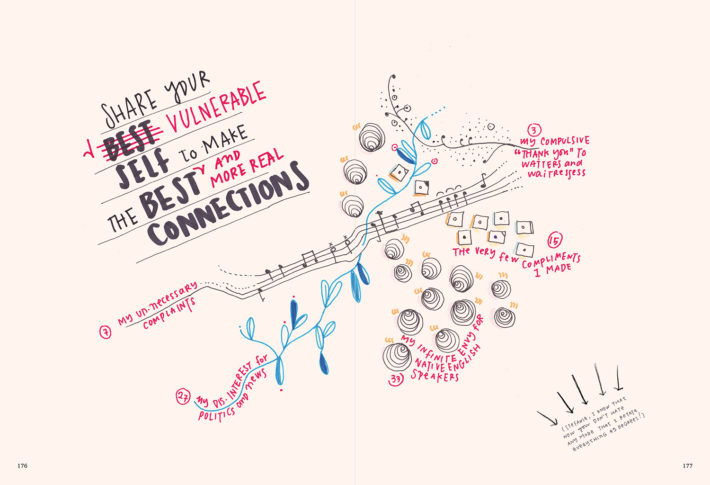 SHARE YOUR
BEST VULNERABLE
SELF TO MAKE
THE BEST AND MORE REAL
CONNECTIONS
3
my COMPULSIVE
"THANK YOU" TO
WAITERS and
waitressess
15
THE VERY FEW COMPLIMENTS
I MADE
7
MY un-necessary
COMPLAINTS
MY INFINITE ENVY FOR
NATIVE ENGLISH
SPEAKERS
33
27
MY DIS-INTEREST for
POLITICS AND NEWS
(STEFANIE, I KNOW THAT
NOW YOU DON'T HATE
AND MORE THAT I ROTATE
EVERYTHING 45 DEGREES!)
176
177